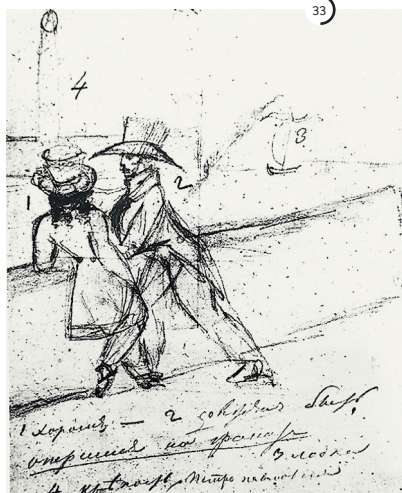 33
4
3
2
1
1 хорошъ — 2 долженъ быть
опершися на гранитъ
3 лодка
4 крѣпость Петропавловская